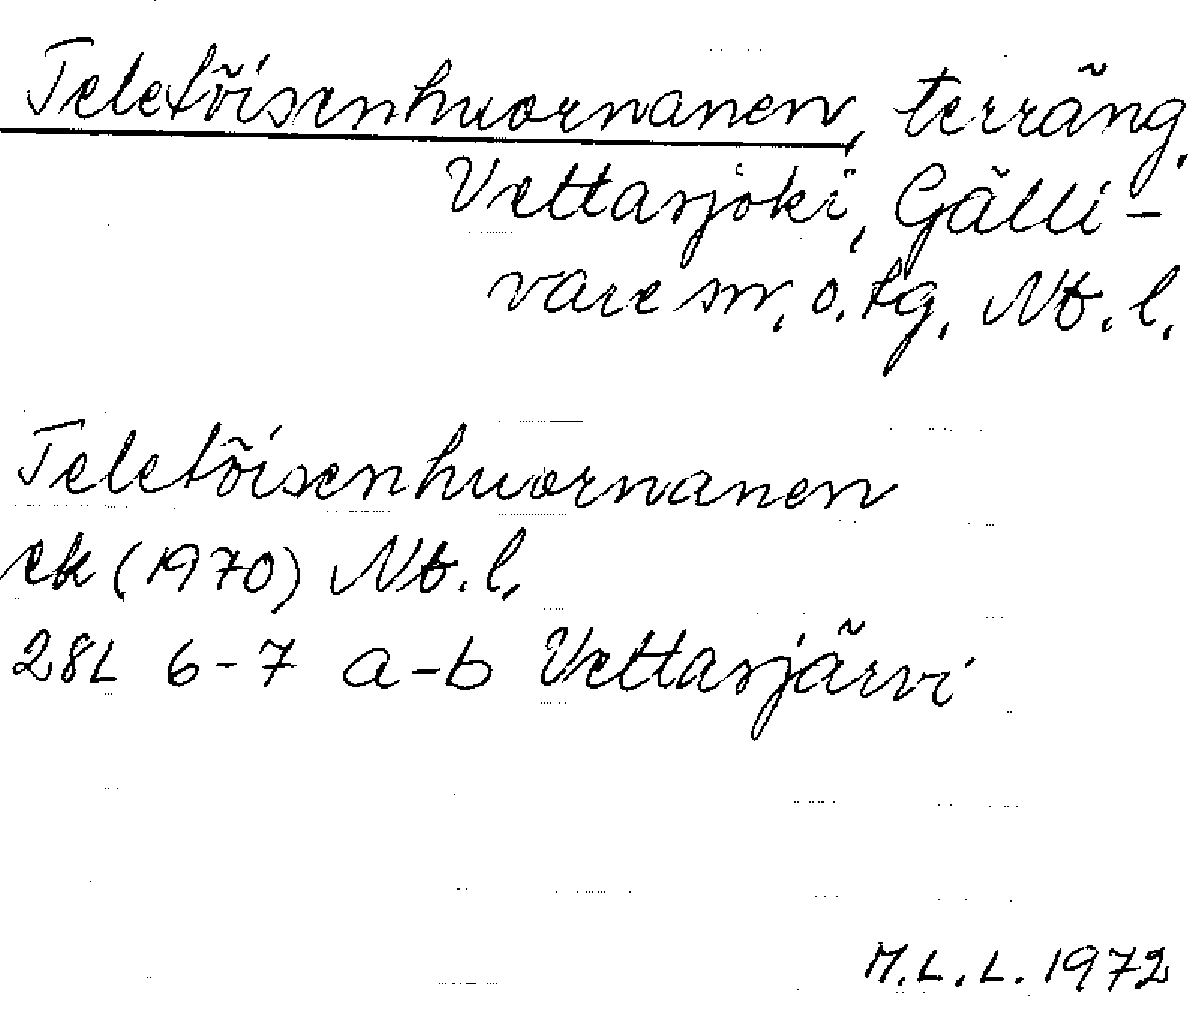 Teletöisenhuornanen, terräng,
Vettasjoki, Gälli-
vare sn, o. tg. Nb. l.
Teletöisenhuornanen
ek (1970) Nb. l.
28L 6-7 a-b Vettasjärvi
M.L.L. 1972